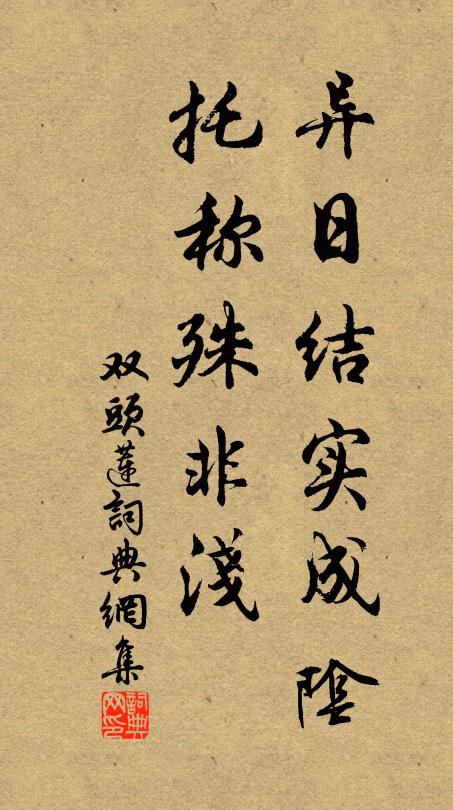 异日结实成陰
托称殊非淺
双頭蓮詞典網集
詞典网印